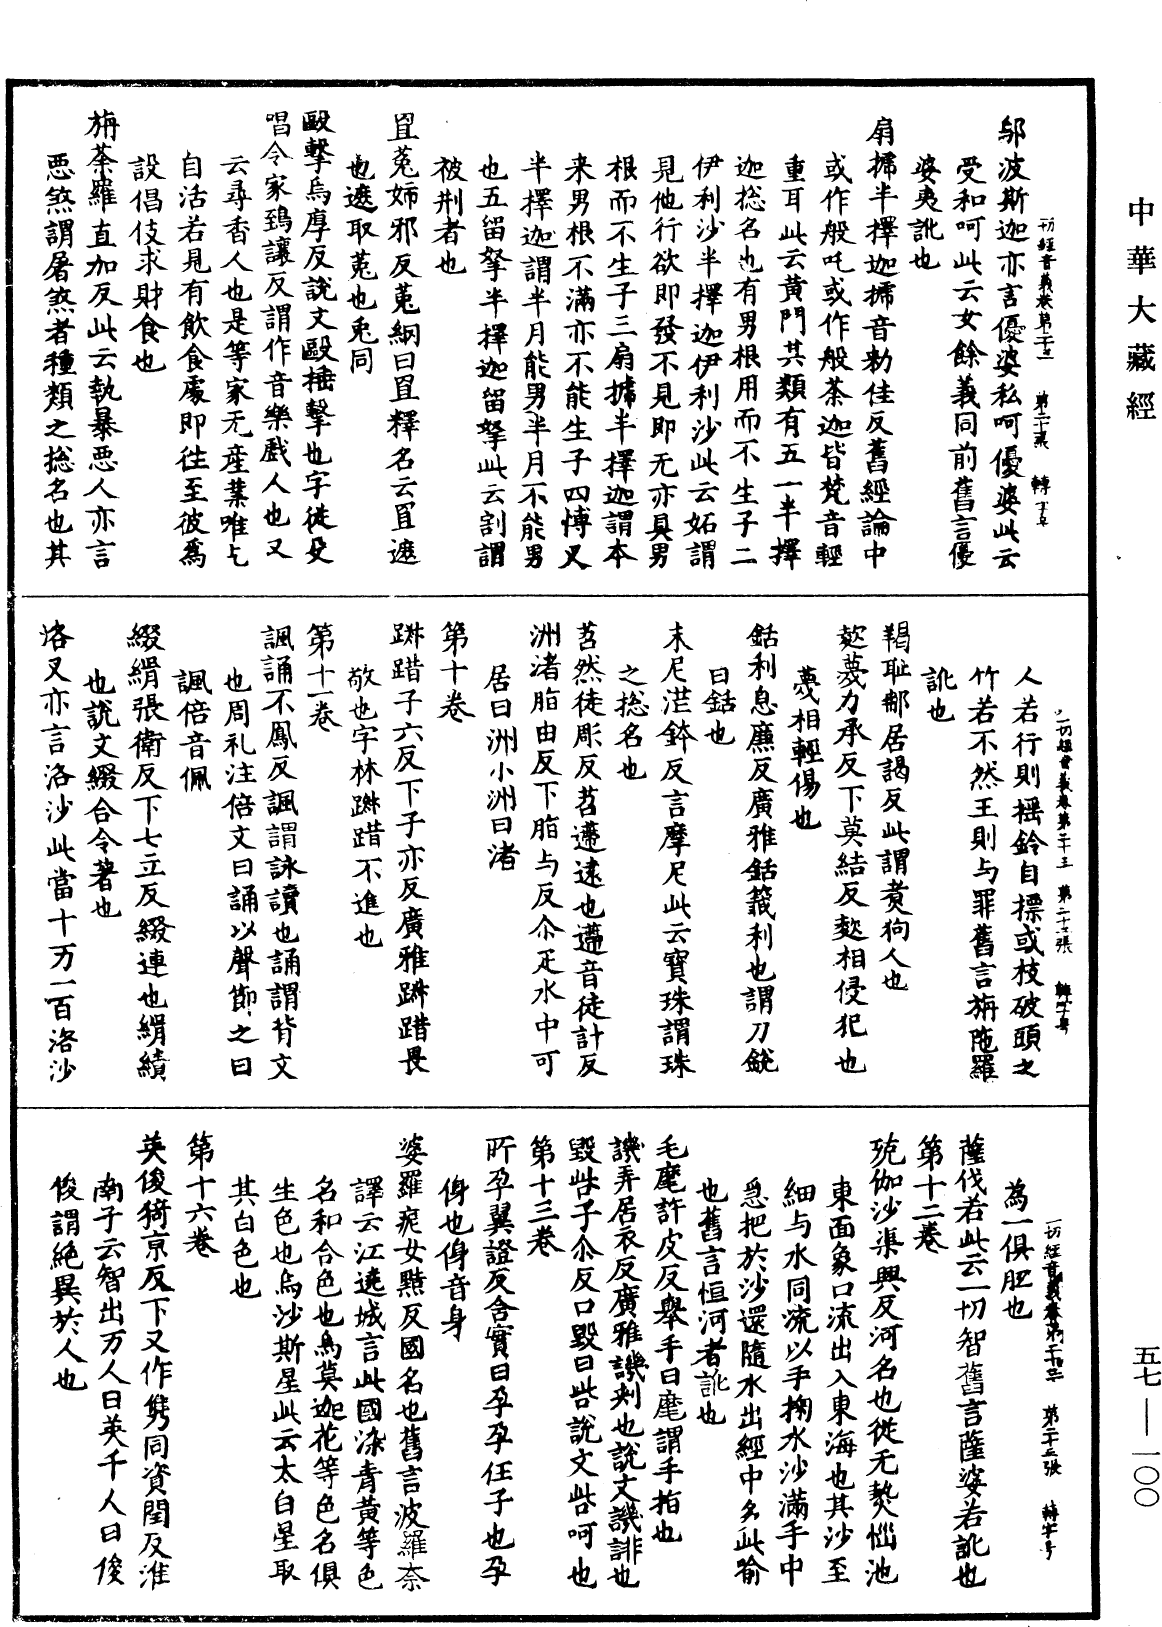 中華大藏經
五七——一〇〇
一切經音義卷第二十三
鄔波斯迦亦言優婆私呵優婆此云
受和呵此云女餘義同前舊言優
婆夷訛也
扇搋半擇迦搋音勑佳反舊經論中
或作般吒或作般荼迦皆梵音輕
重耳此云黄門其類有五一半擇
迦捴名也有男根用而不生子二
伊利沙半擇迦伊利沙此云妬謂
見他行欲即發不見即无亦具男
根而不生子三扇搋半擇迦謂本
来男根不滿亦不能生子四愽叉
半擇迦謂半月能男半月不能男
也五留拏半擇迦留拏此云割謂
被荆者也
罝菟姉邪反菟網曰罝釋名云罝遮
也遮取菟也兎同
毆擊烏厚反說文毆捶擊也字從殳
唱令家鵄讓反謂作音樂戲人也又
云尋香人也是等家无産業唯乞
自活若見有飲食處即往至彼爲
設倡伎求財食也
旃荼羅直加反此云執暴惡人亦言
惡煞謂屠煞者種類之捴名也其
一切經音義卷第二十三
人若行則摇鈴自摽或枝破頭之
竹若不然王則与罪舊言旃陁羅
訛也
羯耻鄁居謁反此謂煑狗人也
㱥蔑力承反下莫結反㱥相侵犯也
蔑相輕傷也
銛利息廉反廣雅銛籤利也謂刀銳
曰銛也
末尼𣳚鉢反言摩尼此云寶珠謂珠
之捴名也
苕然徒彫反苕遰遠也遰音徒計反
洲渚脂由反下脂与反尒疋水中可
居曰洲小洲曰渚
第十卷
踧踖子六反下子亦反廣雅踧踖畏
敬也字林踧踖不進也
第十一卷
諷誦不鳳反諷謂詠讀也誦謂背文
也周礼注倍文曰誦以聲節之曰
諷倍音佩
綴緝張衛反下七立反綴連也緝績
也說文綴合令著也
洛叉亦言洛沙此當十万一百洛沙
一切經音義卷第二十三
為一俱胝也
薩伐若此云一切智舊言薩婆若訛也
第十二卷
殑伽沙渠興反河名也從无熱惱池
東面象口流出入東海也其沙至
細与水同流以手掬水沙滿手中
急把於沙還隨水出經中多此喻
也舊言恒河者訛也
毛麾許皮反舉手曰麾謂手指也
譏弄居衣反廣雅譏刾也說文譏誹也
毀呰子尒反口毀曰呰說文呰呵也
第十三卷
所孕翼證反含實曰孕孕任子也孕
㑗也㑗音身
婆羅痆女黠反國名也舊言波羅奈
譯云江遶城言此國染青黄等色
名和合色也烏莫迦花等色名俱
生色也烏沙斯星此云太白星取
其白色也
第十六卷
英俊猗京反下又作㑺同資閏反淮
南子云智出万人曰英千人曰俊
俊謂絶異於人也